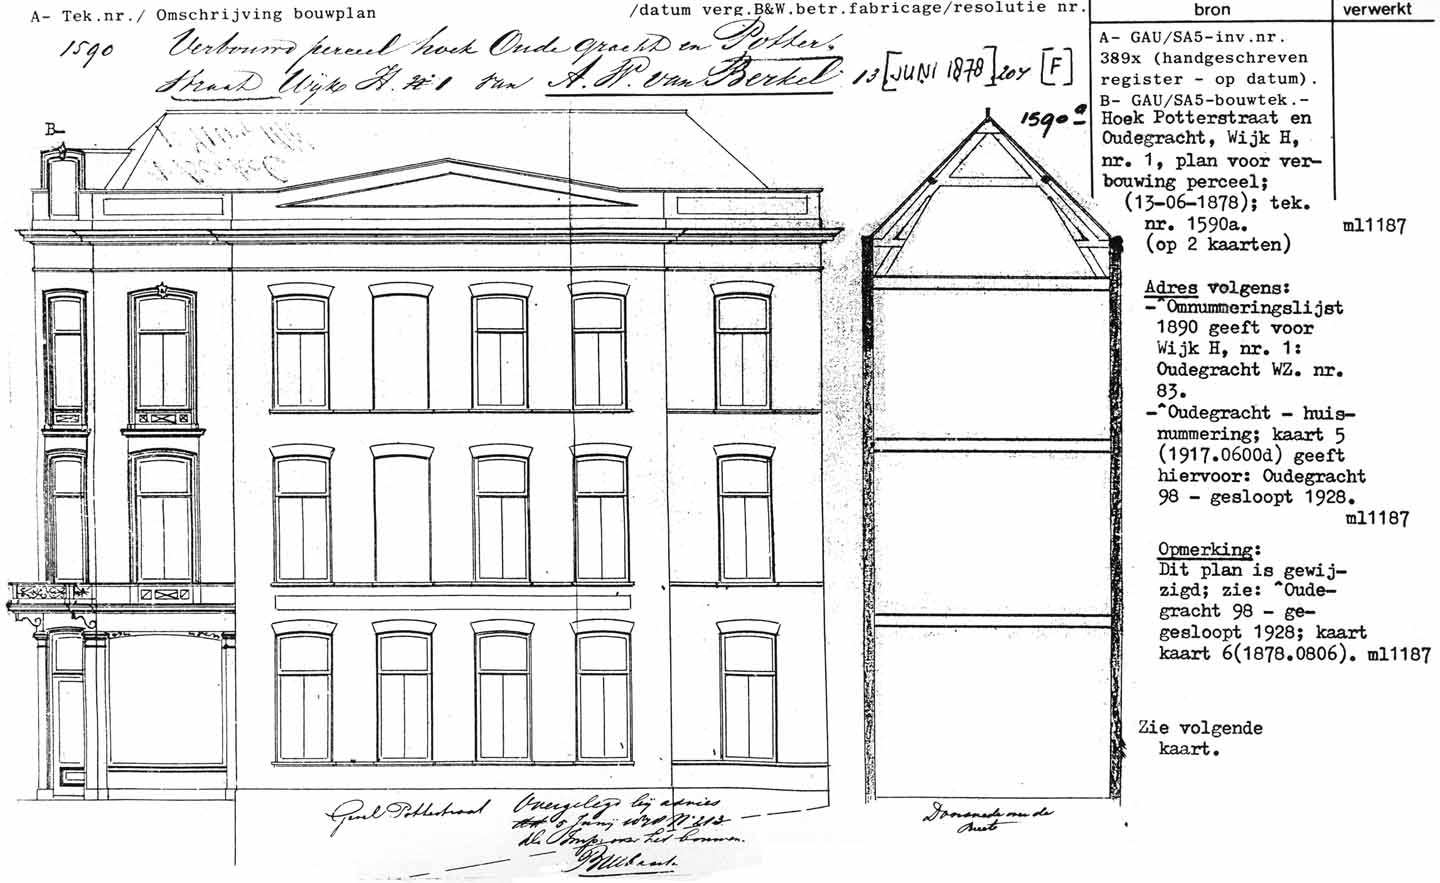 A- Tek.nr./ Omschrijving bouwplan
/datum verg.B&W.betr.fabricage/resolutie nr.
bron
verwerkt
1590 Verbouwd perceel hoek Oude gracht en Potter-
straat Wijk H. N° 1 van A. W. van Berkel 13 [JUNI 1878] 204 [F]
B-
1590a
A- GAU/SA5-inv.nr.
389x (handgeschreven
register - op datum).
B- GAU/SA5-bouwtek.-
Hoek Potterstraat en
Oudegracht, Wijk H,
nr. 1, plan voor ver-
bouwing perceel;
(13-06-1878); tek.
nr. 1590a.
ml1187
(op 2 kaarten)
Adres volgens:
-^Omnummeringslijst
1890 geeft voor
Wijk H, nr. 1:
Oudegracht WZ. nr.
83.
-^Oudegracht - huis-
nummering; kaart 5
(1917.0600d) geeft
hiervoor: Oudegracht
98 - gesloopt 1928.
ml1187
Opmerking:
Dit plan is gewij-
zigd; zie: ^Oude-
gracht 98 - ge-
gesloopt 1928; kaart
kaart 6(1878.0806). ml1187
Zie volgende
kaart.
Gevel Potterstraat
Overgelegd bij advies
5 Junij 1878 N° 212
het bouwen.
Doorsnede over de